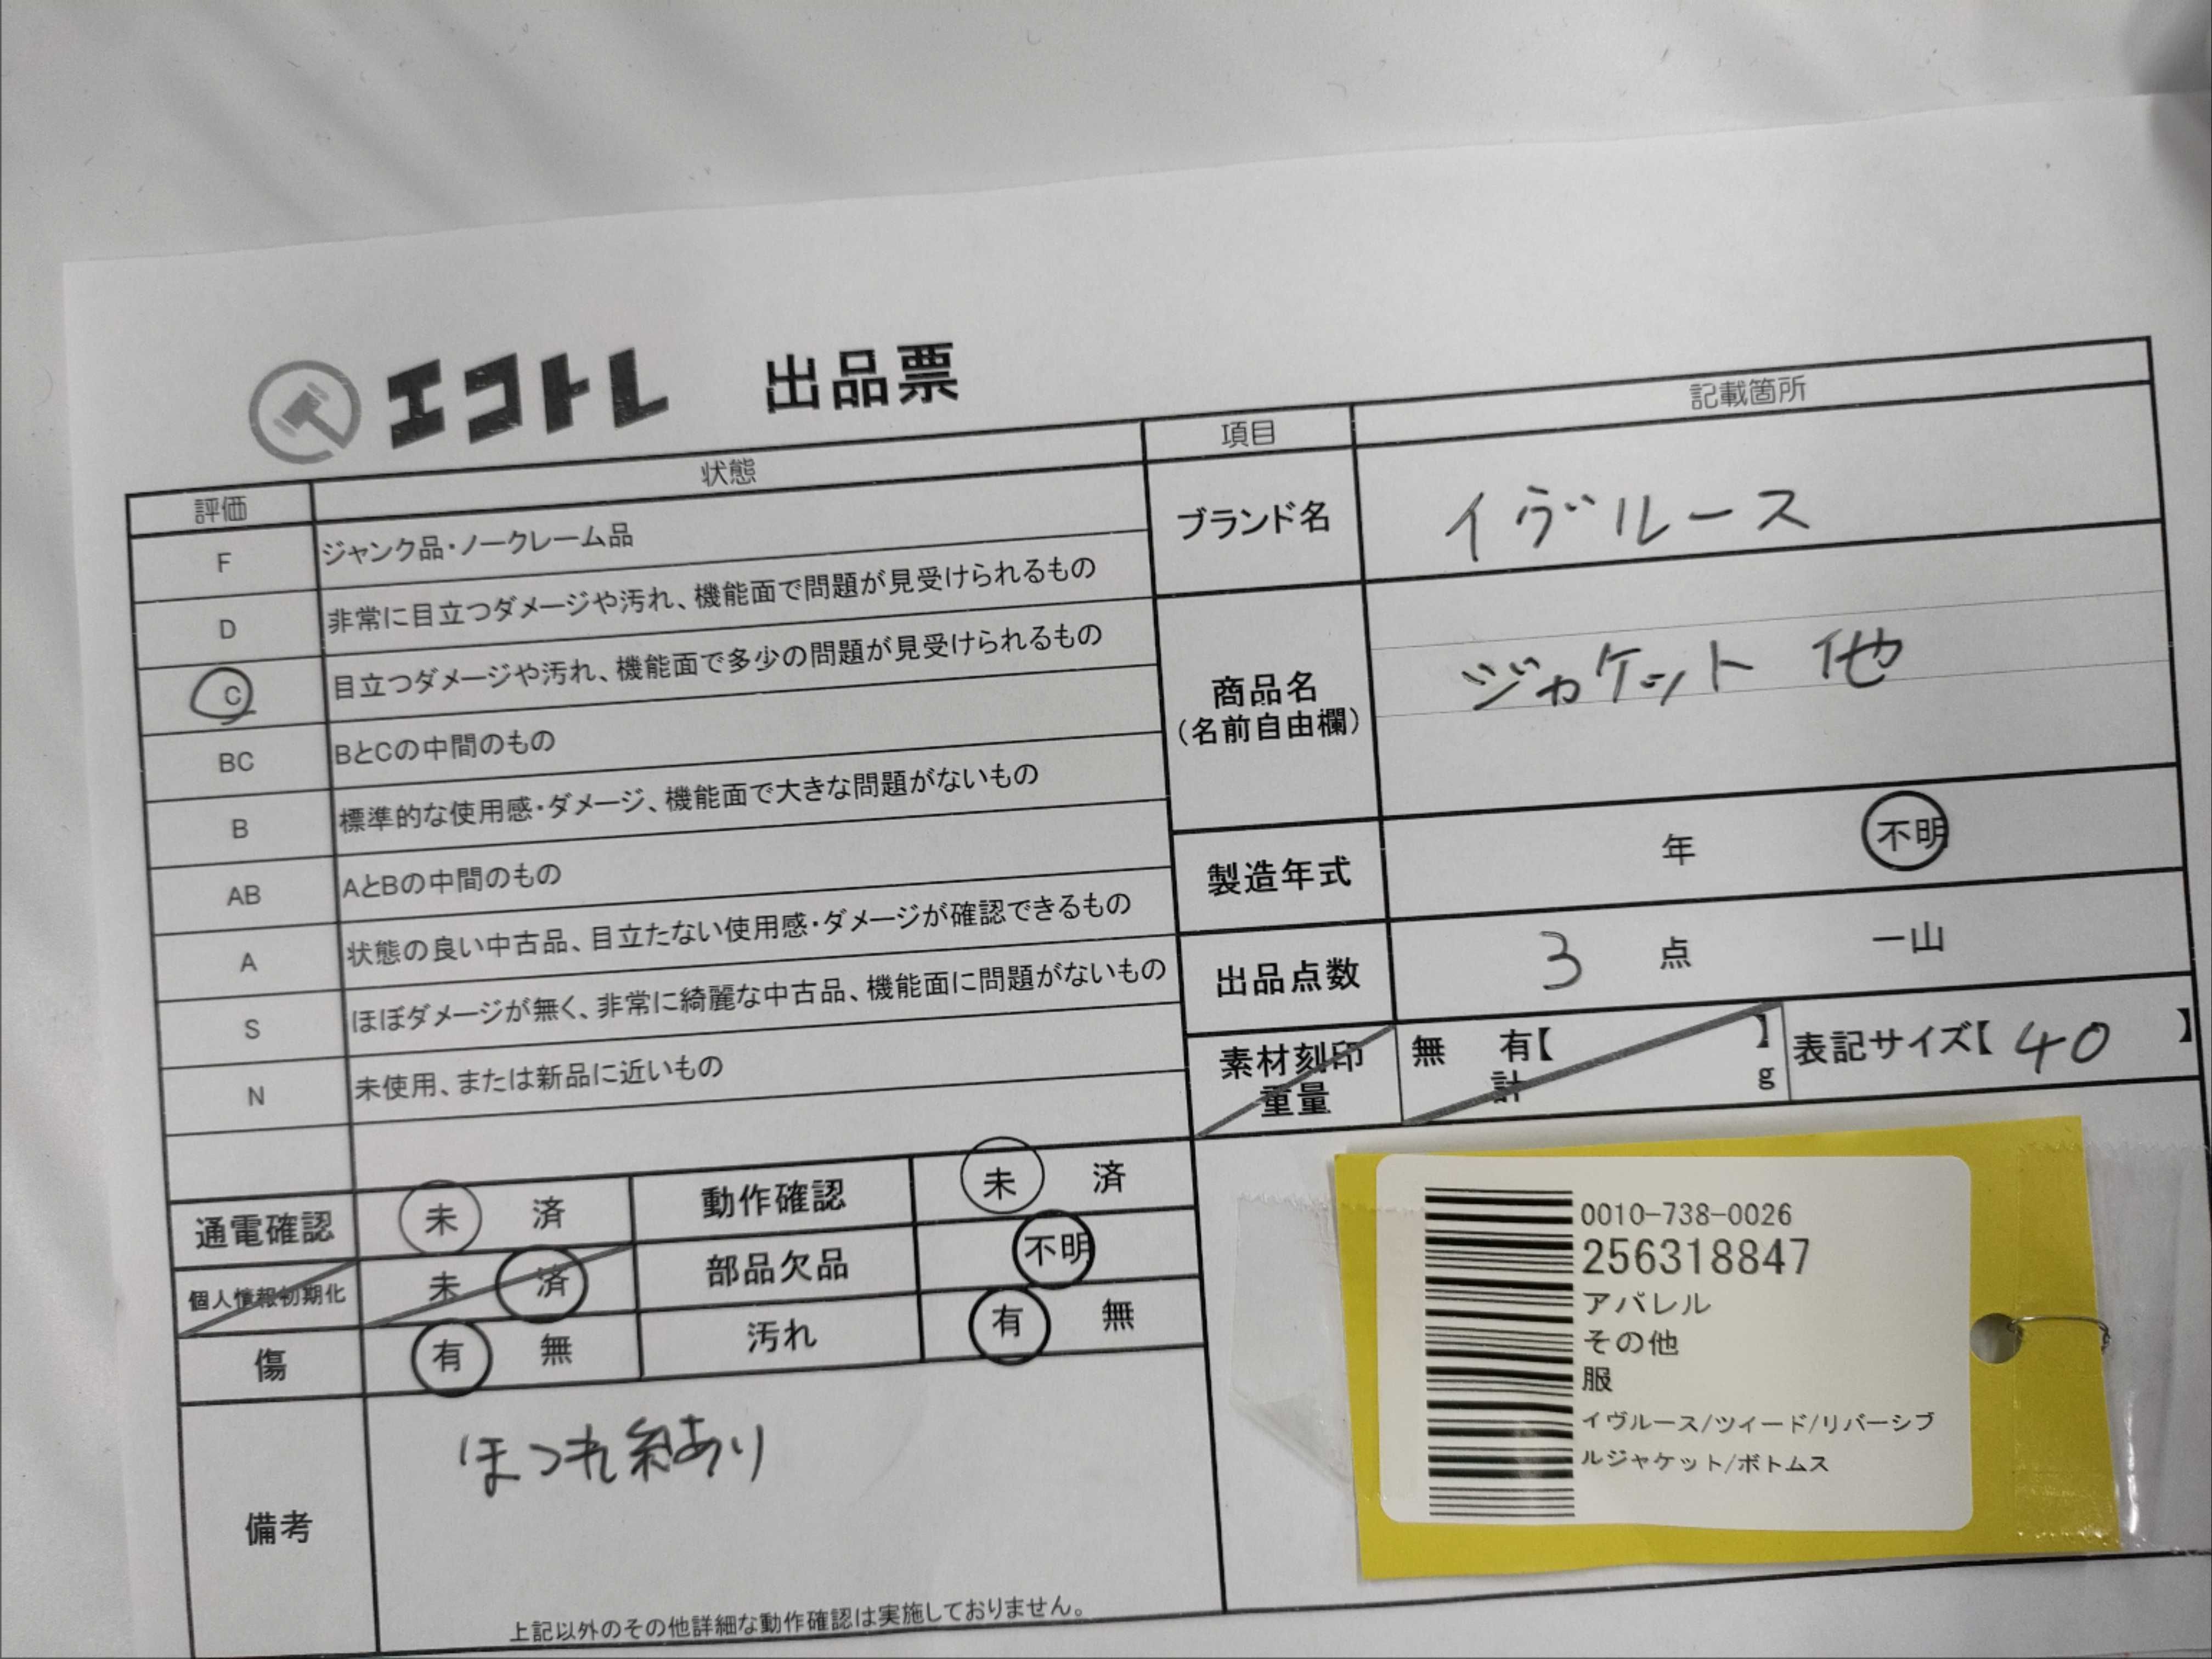 エコトレ 出品票
評価 状態
F ジャンク品・ノークレーム品
D 非常に目立つダメージや汚れ、機能面で問題が見受けられるもの
C 目立つダメージや汚れ、機能面で多少の問題が見受けられるもの
BC BとCの中間のもの
B 標準的な使用感・ダメージ、機能面で大きな問題がないもの
AB AとBの中間のもの
A 状態の良い中古品、目立たない使用感・ダメージが確認できるもの
S ほぼダメージが無く、非常に綺麗な中古品、機能面に問題がないもの
N 未使用、または新品に近いもの
項目 記載箇所
ブランド名 イヴルース
商品名
(名前自由欄)
ジャケット 他
製造年式 年 不明
出品点数 3 点 一山
素材刻印 無 有【 】
重量 計 g
表記サイズ【 40 】
通電確認 未 済 動作確認 未 済
個人情報初期化 未 済 部品欠品 不明
傷 有 無 汚れ 有 無
備考
ほつれ糸あり
上記以外のその他詳細な動作確認は実施しておりません。
0010-738-0026
256318847
アパレル
その他
服
イヴルース/ツイード/リバーシブ
ルジャケット/ボトムス